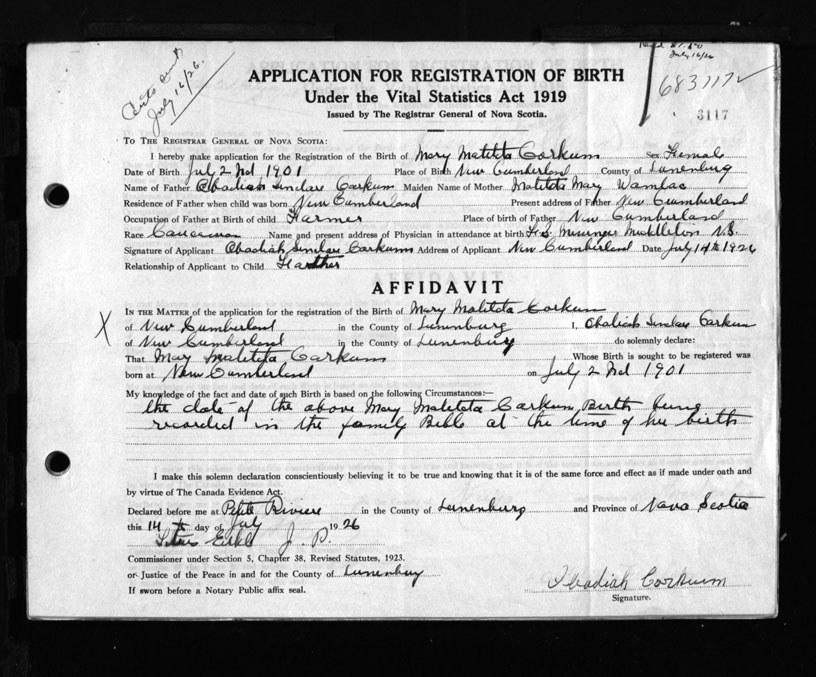 July 16/26.
July 16/26
683117
3117
APPLICATION FOR REGISTRATION OF BIRTH
Under the Vital Statistics Act 1919
Issued by The Registrar General of Nova Scotia.
TO THE REGISTRAR GENERAL OF NOVA SCOTIA:
I hereby make application for the Registration of the Birth of Mary Matilda Corkum Sex Female
Date of Birth July 2nd 1901 Place of Birth New Cumberland County of Lunenburg
Name of Father Obadiah Sinclare Carkum Maiden Name of Mother Matilda Mary
Residence of Father when child was born New Cumberland Present address of Father New Cumberland
Occupation of Father at Birth of child Farmer Place of birth of Father New Cumberland
Race Name and present address of Physician in attendance at birth N.S.
Signature of Applicant Obadiah Sinclare Carkum Address of Applicant New Cumberland Date July 14th 1926
Relationship of Applicant to Child
AFFIDAVIT
IN THE MATTER of the application for the registration of the Birth of Mary Matilda Corkum
X of New Cumberland in the County of Lunenburg I, Obadiah Sinclare Carkum
of New Cumberland in the County of Lunenburg do solemnly declare:
That Mary Matilda Carkum Whose Birth is sought to be registered was
born at New Cumberland on July 2nd 1901
My knowledge of the fact and date of such Birth is based on the following Circumstances:—
the date of the above Mary Matilda Carkum Birth being
recorded in the family Bible at the time of her birth
I make this solemn declaration conscientiously believing it to be true and knowing that it is of the same force and effect as if made under oath and
by virtue of The Canada Evidence Act.
Declared before me at Petite Riviere in the County of Lunenburg and Province of Nova Scotia
this 14th day of July 1926
J. P.
Commissioner under Section 5, Chapter 38, Revised Statutes, 1923.
or Justice of the Peace in and for the County of Lunenburg
If sworn before a Notary Public affix seal.
Obadiah Corkum
Signature.